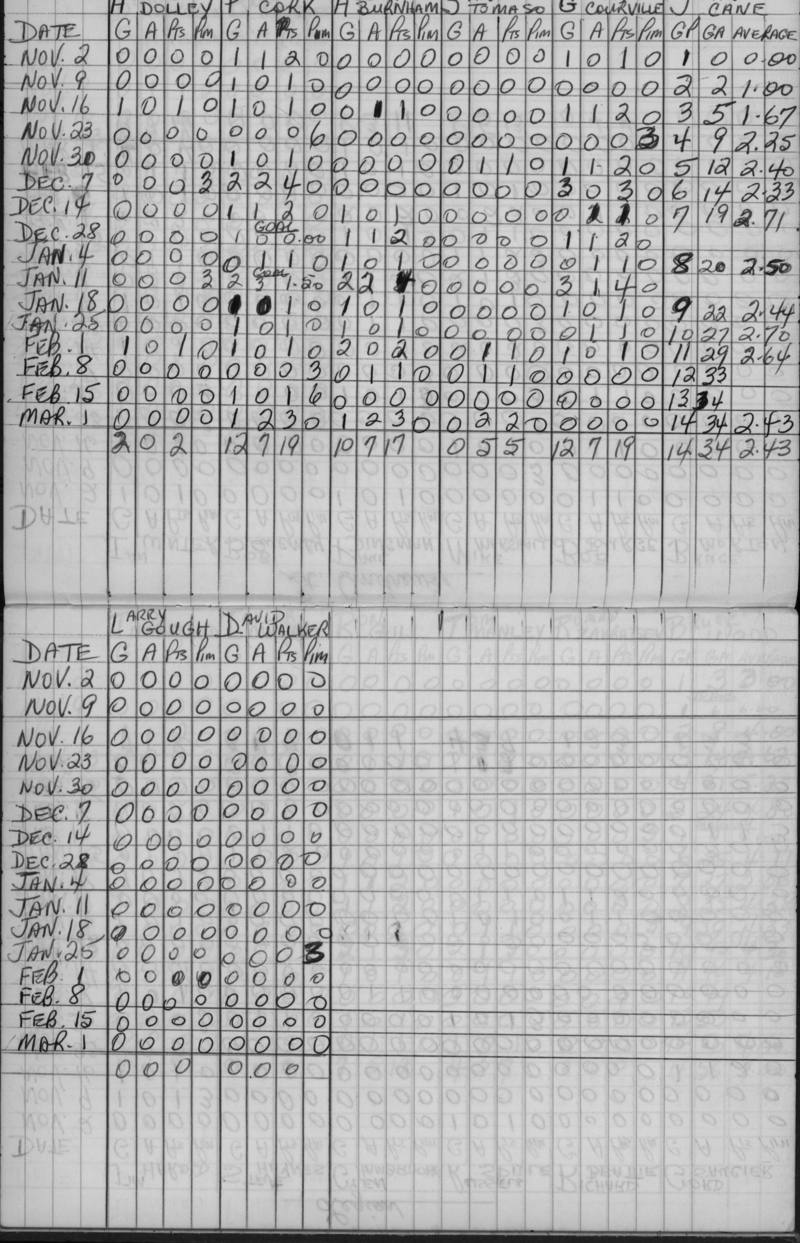 H DOLLEY P. CORK H BURNHAM J TOMASO G COURVILLE J CANE
DATE G A Pts Pim G A Pts Pim G A Pts Pim G A Pts Pim G A Pts Pim GP GA AVERAGE
NOV. 2 0 0 0 0 1 1 2 0 0 0 0 0 0 0 0 0 1 0 1 0 1 0 0.00
NOV. 9 0 0 0 0 1 0 1 0 0 0 0 0 0 0 0 0 0 0 0 0 2 2 1.00
NOV. 16 1 0 1 0 1 0 1 0 0 1 1 0 0 0 0 0 1 1 2 0 3 5 1.67
NOV. 23 0 0 0 0 0 0 0 6 0 0 0 0 0 0 0 0 0 0 0 3 4 9 2.25
NOV. 30 0 0 0 0 1 0 1 0 0 0 0 0 0 1 1 0 1 1 2 0 5 12 2.40
DEC. 7 0 0 0 3 2 2 4 0 0 0 0 0 0 0 0 0 3 0 3 0 6 14 2.33
DEC. 14 0 0 0 0 1 1 2 0 1 0 1 0 0 0 0 0 0 1 1 0 7 19 2.71
GOAL
DEC. 28 0 0 0 0 1 0 0.00 1 1 2 0 0 0 0 0 1 1 2 0
JAN. 4 0 0 0 0 0 1 1 0 1 0 1 0 0 0 0 0 0 1 1 0 8 20 2.50
GOAL
JAN. 11 0 0 0 3 2 3 1.50 2 2 4 0 0 0 0 0 3 1 4 0
JAN. 18 0 0 0 0 1 0 1 0 1 0 1 0 0 0 0 0 1 0 1 0 9 22 2.44
JAN. 25 0 0 0 0 1 0 1 0 1 0 1 0 0 0 0 0 0 1 1 0 10 27 2.70
FEB. 1 1 0 1 0 1 0 1 0 2 0 2 0 0 1 1 0 1 0 1 0 11 29 2.64
FEB. 8 0 0 0 0 0 0 0 3 0 1 1 0 0 1 1 0 0 0 0 0 12 33
FEB 15 0 0 0 0 1 0 1 6 0 0 0 0 0 0 0 0 0 0 0 0 13 34
MAR. 1 0 0 0 0 1 2 3 0 1 2 3 0 0 2 2 0 0 0 0 0 14 34 2.43
2 0 2 12 7 19 10 7 17 0 5 5 12 7 19 14 34 2.43
LARRY GOUGH DAVID WALKER
DATE G A Pts Pim G A Pts Pim
NOV. 2 0 0 0 0 0 0 0 0
NOV. 9 0 0 0 0 0 0 0 0
NOV. 16 0 0 0 0 0 0 0 0
NOV. 23 0 0 0 0 0 0 0 0
NOV. 30 0 0 0 0 0 0 0 0
DEC. 7 0 0 0 0 0 0 0 0
DEC. 14 0 0 0 0 0 0 0 0
DEC. 28 0 0 0 0 0 0 0 0
JAN. 4 0 0 0 0 0 0 0 0
JAN. 11 0 0 0 0 0 0 0 0
JAN. 18 0 0 0 0 0 0 0 0
JAN. 25 0 0 0 0 0 0 0 3
FEB. 1 0 0 0 0 0 0 0 0
FEB. 8 0 0 0 0 0 0 0 0
FEB. 15 0 0 0 0 0 0 0 0
MAR. 1 0 0 0 0 0 0 0 0
0 0 0 0 0 0